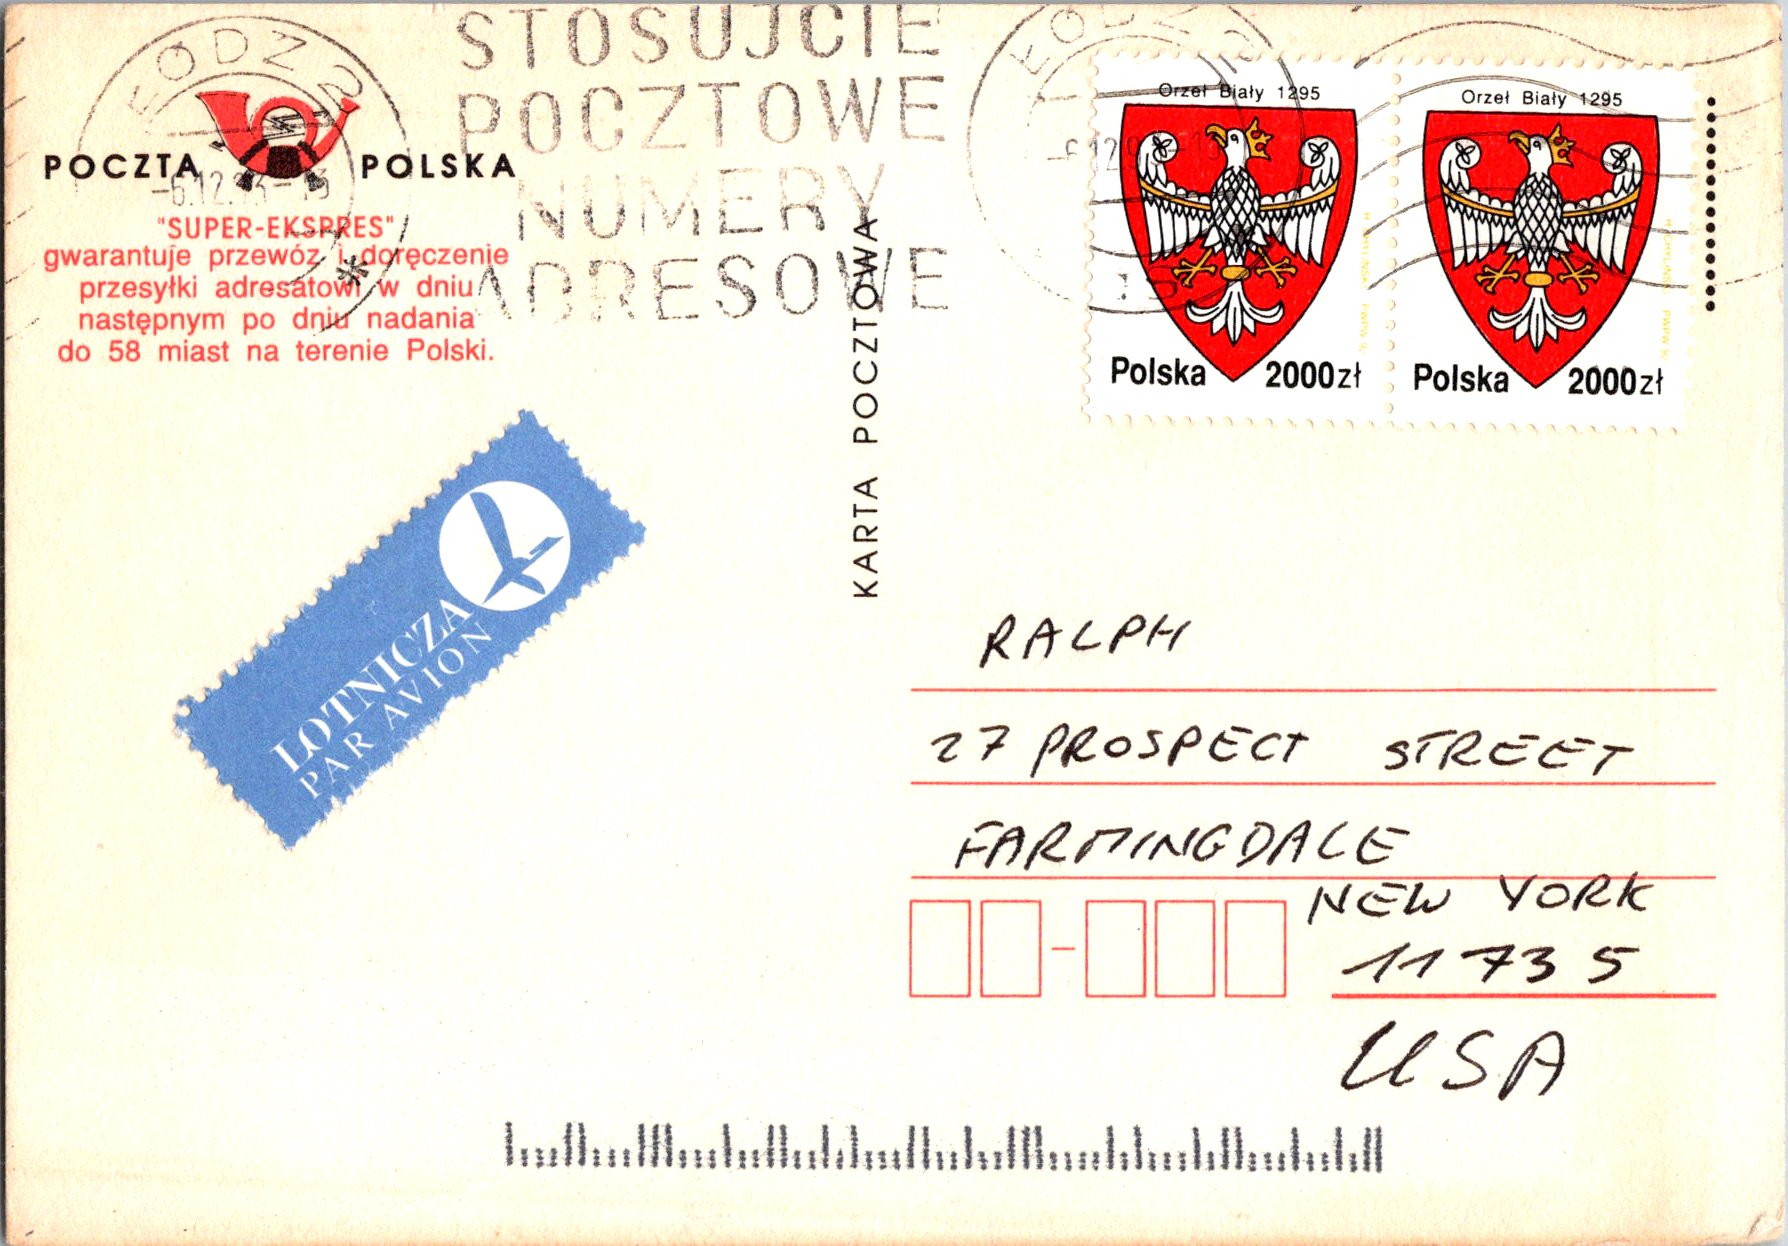 ŁÓDŹ 2
STOSUJCIE
POCZTOWE
NUMERY
ADRESOWE
ŁÓD
POCZTA POLSKA
"SUPER-EKSPRES"
gwarantuje przewóz i doręczenie
przesyłki adresatowi w dniu
następnym po dniu nadania
do 58 miast na terenie Polski.
KARTA POCZTOWA
Orzeł Biały 1295
Polska 2000 zł
Orzeł Biały 1295
Polska 2000 zł
LOTNICZA
PAR AVION
RALPH
27 PROSPECT STREET
FARMINGDALE
NEW YORK
11735
USA